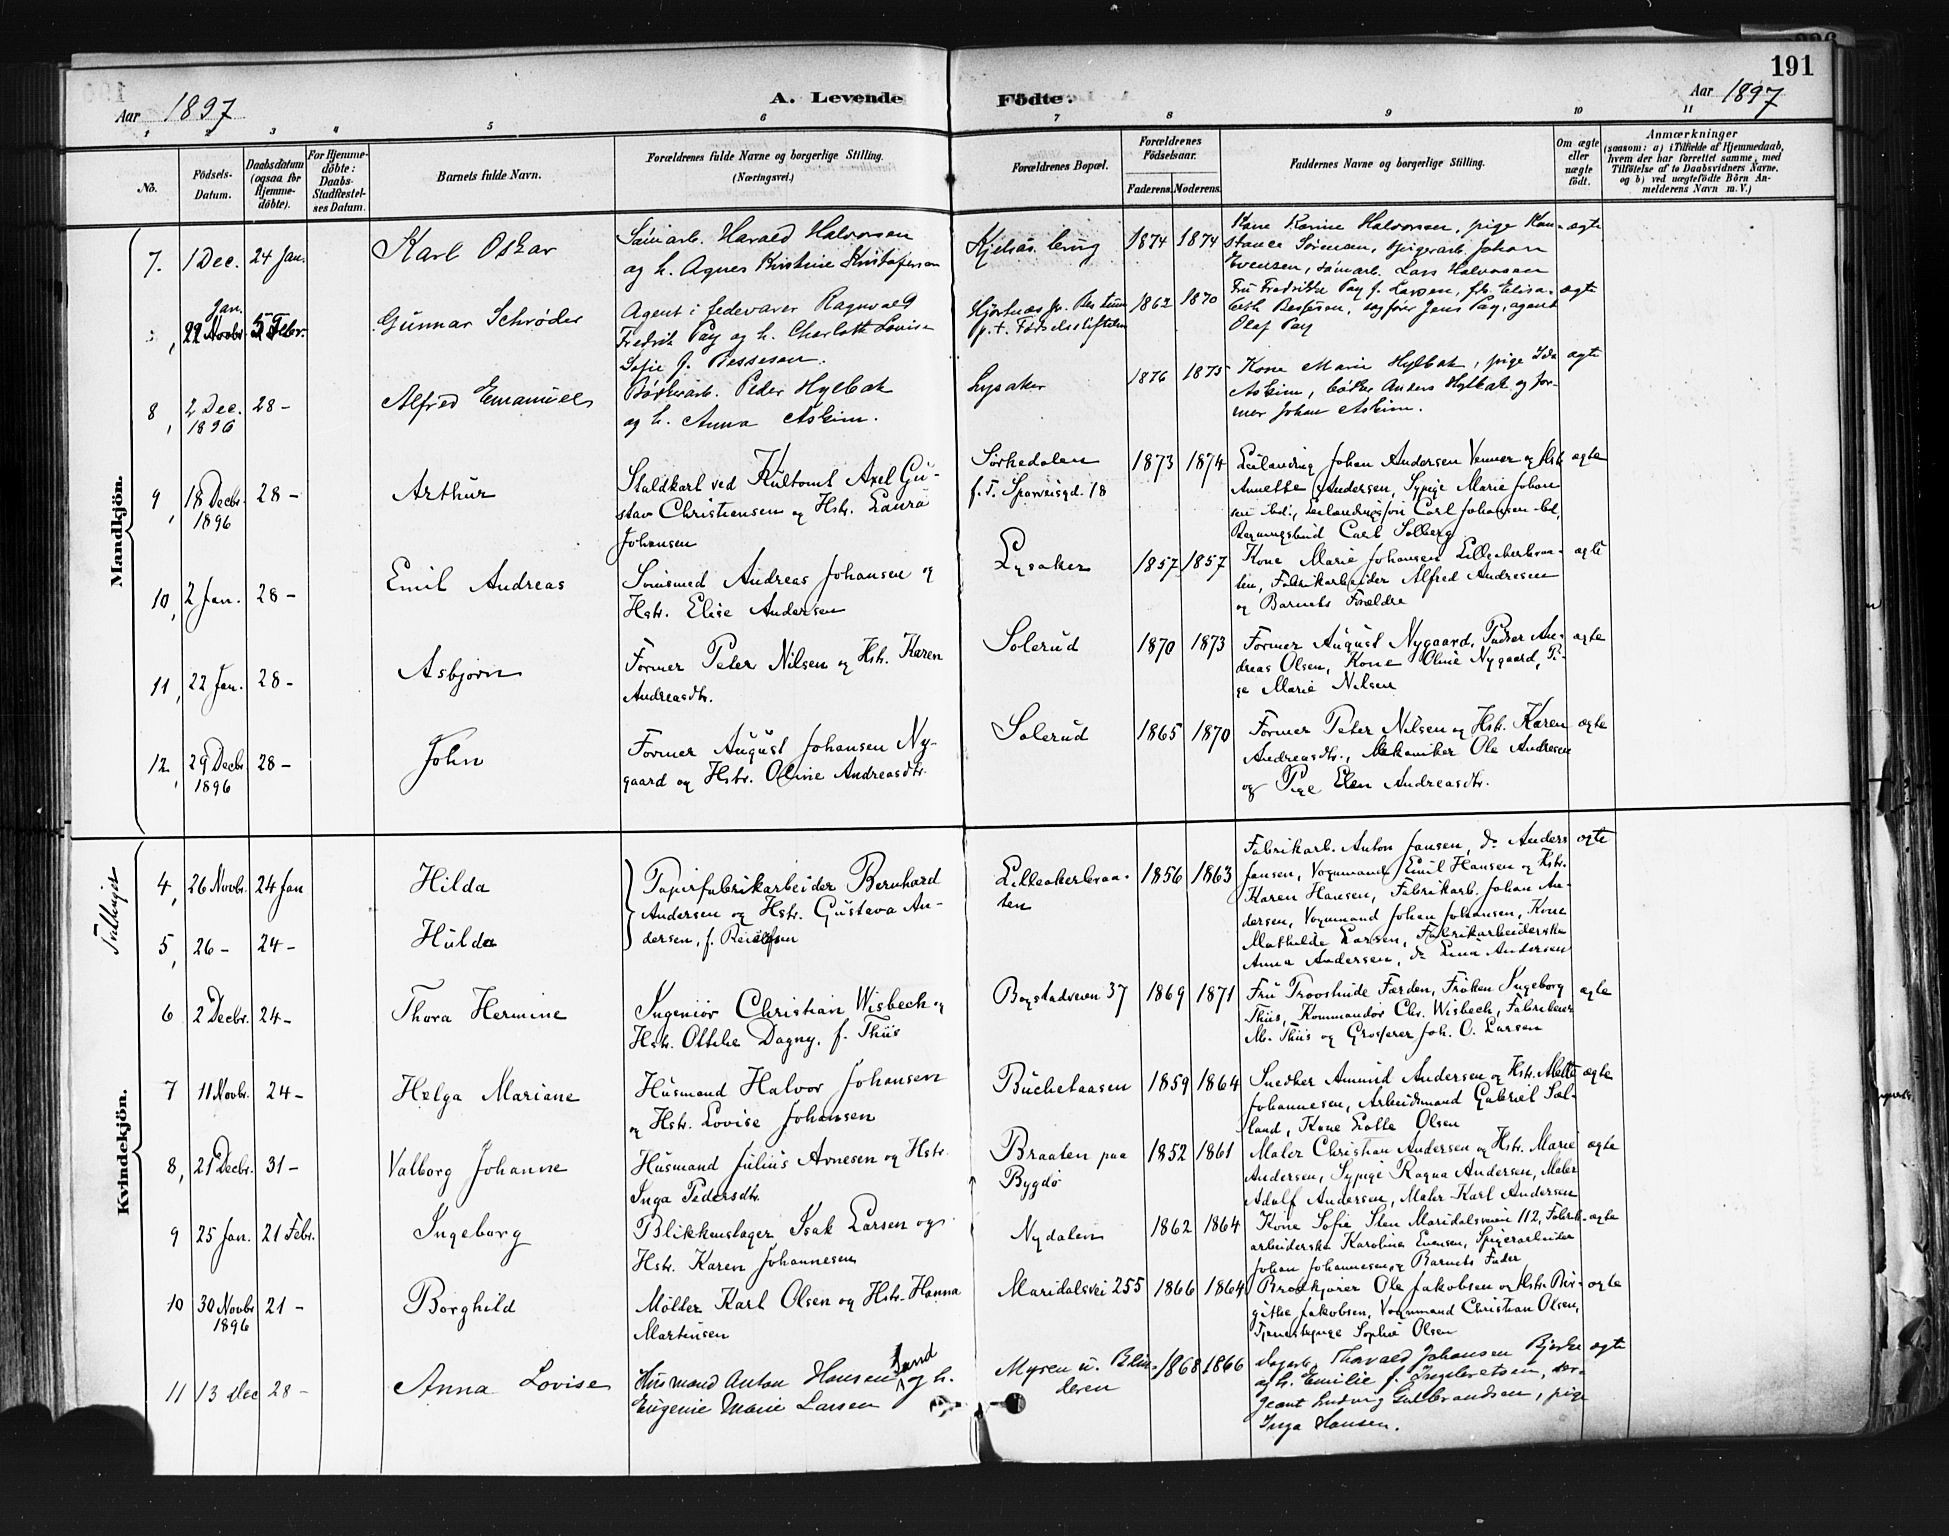 191
Aar 1897 A. Levende Födte. Aar 1897
1 2 3 4 5 6 7 8 9 10 11
No.
Födsels-Datum.
Daabsdatum (ogsaa for Hjemme-döbte).
For Hjemme-döbte: Daabs-Stadfæstel-ses Datum.
Barnets fulde Navn.
Forældrenes fulde Navne og borgerlige Stilling. (Næringsvei.)
Forældrenes Bopæl.
Forældrenes Födselsaar.
Faderens. Moderens.
Faddernes Navne og borgerlige Stilling.
Om ægte eller uægte födt.
Anmærkninger
(saasom: a) i Tilfælde af Hjemmedaab, hvem der har forrettet samme, med Tilföielse af to Daabsvidners Navne, og b) ved uægtefödte Börn Anmelderens Navn m. V.)
Mandkjön.
7. 1 Dec. 24 Jan. Karl Oskar
Harald Halvorsen
og h. Agnes Kristine Kristofersen
Kjelsås brug 1874 1874
Kone Karine Halvorsen, pige Kon-
stance Sörensen, spigerarb. Johan
Evensen, Lars Halvorsen
ægte
Jan.
22 Novbr. 5 Febr. Gunnar Schrøder
Agent i fedevarer Ragnvald
Fredrik Pay og h. Charlotte Lovise
Sofie f. Bessesen.
p.t. Fødselsstiftelsen 1862 1870
Fru Fredrikke Pay f. Larsen, frk. Elisa-
beth Bessesen, Jens Pay, agent
Olaf Pay
ægte
8, 2 Dec. 1896 28 - Alfred Emanuel
Peder Hylbak
og h. Anna Askim.
Lysaker 1876 1875
Kone Marie Hylbak, pige Ida
Askim, bödker Anders Hylbak og for-
mer Johan Askim.
ægte
9, 18 Decbr. 1896 28 - Arthur
Staldkarl ved Axel Gu-
stav Christiansen og Hstr. Laura
Johansen
Sörkedalen
18
1873 1874
Johan Andersen og Hstr.
Annette Andersen, Sypige Marie Johan
sen Carl Johansen
Carl Solberg
ægte
10, 2 Jan. 28 - Emil Andreas
Andreas Johansen og
Hstr. Elise Andersen
Lysaker 1857 1857
Kone Marie Johansen Lilleakerbraa-
ten, Fabrikarbeider Alfred Andresen
og Barnets Forældre
ægte
11, 22 Jan. 28 - Asbjørn
Former Peter Nilsen og Hstr. Karen
Andreasdtr.
Solerud 1870 1873
Former August Nygaard, Pudser An-
dreas Olsen, Kone Oline Nygaard, Pi-
ge Marie Nilsen
ægte
12, 29 Decbr 1896 28 - John
Former August Johansen Ny-
gaard og Hstr. Oline Andreasdtr.
Solerud 1865 1870
Former Peter Nilsen og Hstr. Karen
Andreasdtr., Mekaniker Ole Andresen
og Pige Elen Andreasdtr.
ægte
Kvindekjön.
Tvillinger
4, 26 Novbr. 24 Jan Hilda
5, 26 - 24 - Hulda
Papirfabrikarbeider Bernhard
Andersen og Hstr. Gustava An-
dersen, f.
Lilleakerbraa-
ten
1856 1863
Fabrikarb. Anton Jansen, do Anders
Jansen, Vognmand Emil Hansen og Hstr.
Karen Hansen, Fabrikarb. Johan An-
dersen, Vognmand Johan Johansen, Kone
Mathilde Larsen, Fabrikarbeiderske
Anna Andersen, do Lina Andersen
ægte
6 2 Decbr. 24 - Thora Hermine
Ingeniör Christian Wisbech og
Hstr. Ottilie Dagny, f. Thiis
Bogstadveien 37 1869 1871
Fru Færden, Fröken Ingeborg
Thiis, Kommandör Chr. Wisbech, Fabrikeier
M. Thiis og Grosserer Joh. O. Larsen
ægte
7 11 Novbr. 24 - Helga Mariane
Husmand Halvor Johansen
og Hstr. Lovise Johansen
Büchelaasen 1859 1864
Snedker Amund Andersen og Hstr. Mette
Johannesen, Arbeidsmand Gabriel Sæl-
land, Kone Olsen
ægte
8, 21 Decbr. 31 - Valborg Johanne
Husmand Julius Arnesen og Hstr.
Inga Pedersdtr.
Braaten paa
Bygdö
1852 1861
Maler Christian Andersen og Hstr. Marie
Andersen, Sypige Ragna Andersen, Maler
Adolf Andersen, Maler Karl Andersen
ægte
9 25 Jan. 21 Febr. Ingeborg
Blikkenslager Isak Larsen og
Hstr. Karen Johannesen
Nydalen 1862 1864
Kone Sofie Sten Maridalsveien 112, Fabrik-
arbeiderske Karoline Evensen, Spigerarbeider
Johan Johannesen og Barnets Fader
ægte
10 30 Novbr 1896 21 - Borghild
Mölder Karl Olsen og Hstr. Hanna
Martinsen
Maridalsvei 255 1866 1864
Brödkjörer Ole Jakobsen og Hstr. Bir-
githe Jakobsen, Vognmand Christian Olsen,
Tjenestepige Sophie Olsen
ægte
11 13 Dec 28 - Anna Lovise
Husmand Anton Hansen Sand og h.
Eugenie Marie Larsen
Myren u. Blin-
deren
1868 1866
Dagarb. Thorvald Johansen Bjerke
og h. Emilie f. Ingebretsen, ser-
geant Ludvig Gulbrandsen, pige
Inga Hansen.
ægte